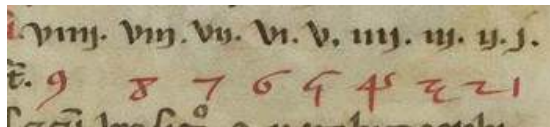 viiij. viij. vij. vi. v. iiij. iij. ij. j.
t̄. 9 8 7 6 5 4 3 2 1